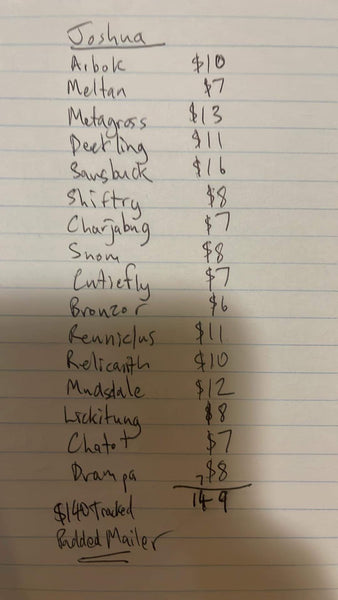 Joshua
Arbok $10
Meltan $7
Metagross $13
Deerling $11
Sawsbuck $16
Shiftry $8
Charjabug $7
Snom $8
Cutiefly $7
Bronzor $6
Reuniclus $11
Relicanth $10
Mudsdale $12
Lickitung $8
Chatot $7
Drampa $8
149
$140 Tracked
Padded Mailer